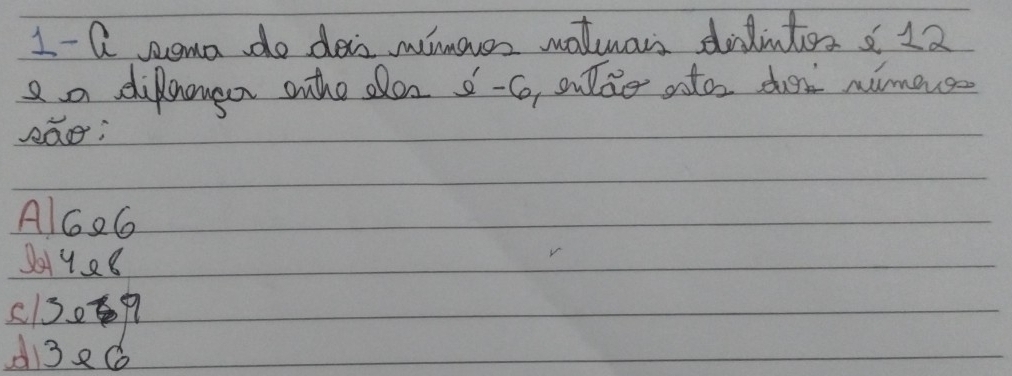 1-A soma de dois números naturais distintos é 12
e a diferença entre eles é -6, então estes dois números
são:
A) 6 e 6
b) 4 e 8
c) 3 e 9
d) 3 e 6